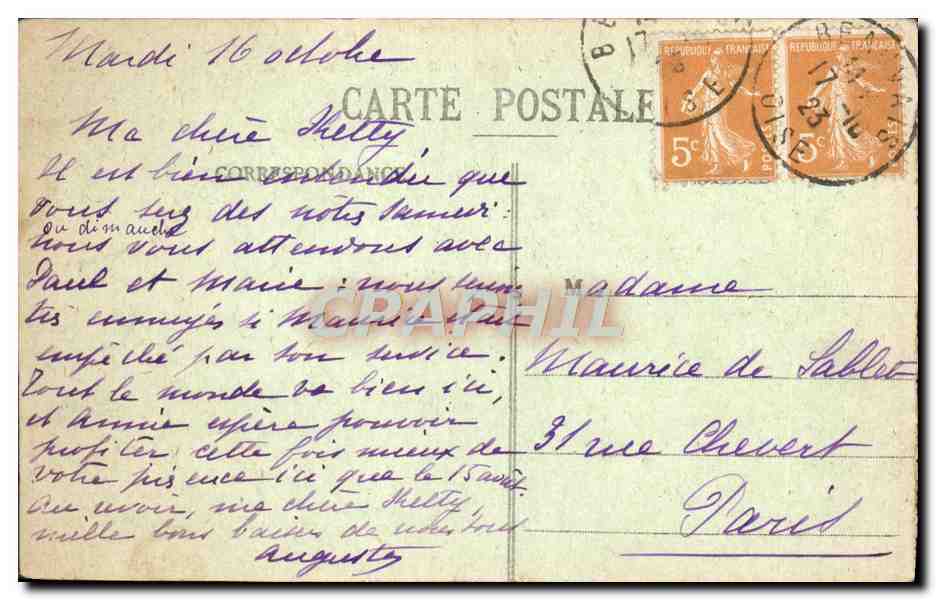 Mardi 16 octobre
CARTE POSTALE
CORRESPONDANCE
Ma chère Ketty
Il est bien entendu que
vous serez des notres samedi
ou dimanche
nous vous attendons avec
Paul et Marie : nous serions
très ennuyés si Maurice était
empêché par son service.
Tout le monde va bien ici,
et Annie espère pouvoir
profiter cette fois mieux de
votre présence ici que le 15 août.
au revoir, ma chère Ketty,
mille bons baisers de nous tous
Auguste
REPUBLIQUE FRANÇAISE
5c
REPUBLIQUE FRANÇAISE
5c
BEAUVAIS
17 -10
23
OISE
Madame
Maurice de Sablet
31 rue Chevert
Paris
CPAPHIL